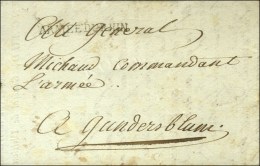 Au General
Michaud Commandant
L'armée
A Gundersblum